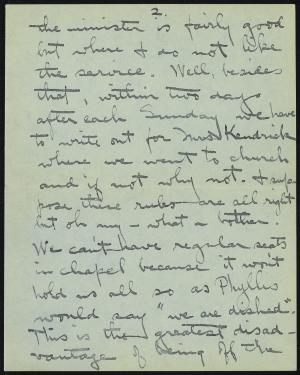 2.
the minister is fairly good
but where I do not like
the service. Well, besides
that, within two days
after each Sunday we have
to write out for Miss Kendrick
where we went to church
and if not why not. I sup-
pose these rules are all right
but oh my - what a bother.
We can't have regular seats
in chapel because it won't
hold us all so as Phyllis
would say "we are dished".
This is the greatest disad-
vantage of being off the